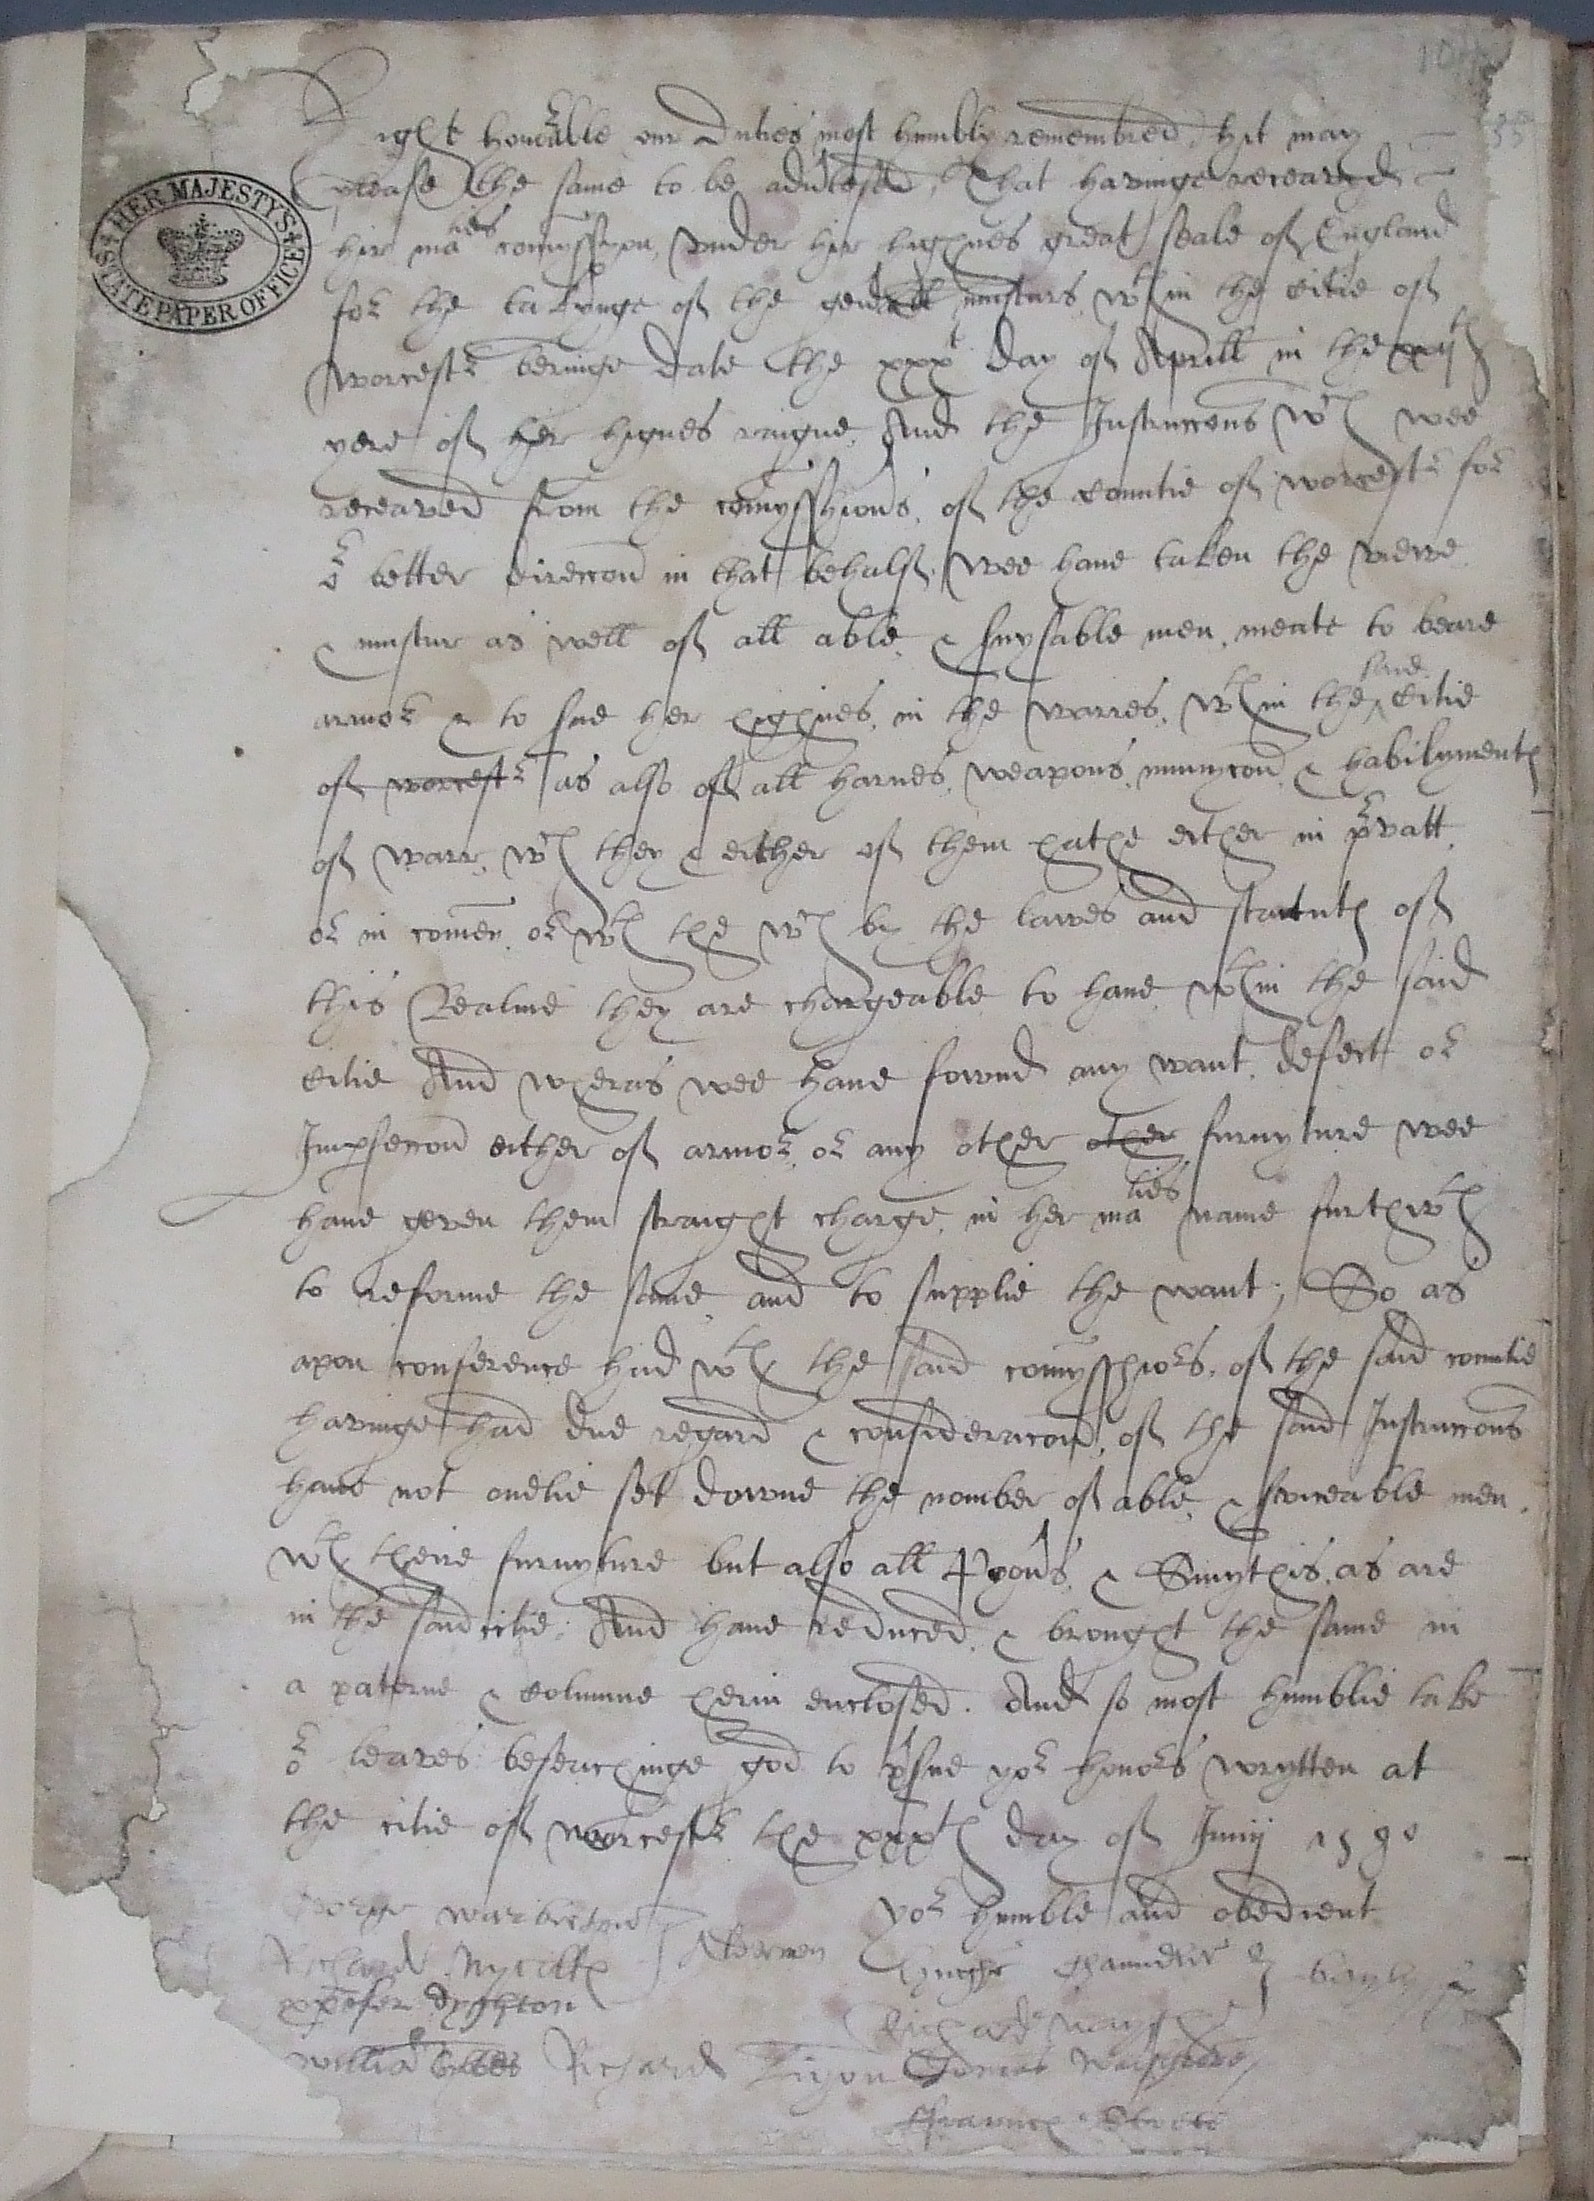 Right hono^r^able our Duties most humbly remembred, hit may
please the same to be advertesed, That havinge receaved
hir ma^ties^ comyssyon, vnder hir highnes great seale of England
for the takynge of the generall musturs w^th^in the citie of
Worcest^r^ beringe date the xxx^t^ day of Aprill in the xxij^th^
yere of her hignes raigne, And the Instruccons w^ch^ wee
receaved from the comysshion^r^s, of the countie of worcest^r^ for
o^r^ better direccon in that behalf, wee haue taken the viewe
& mustur as well of all able, & s^r^uysable men, meate to beare
armor & to serue her highnes, in the warres, w^th^in the said citie
of worcest^r^ as also of all harnes, weapons, munycon, & habilyment^es^
of warr, w^ch^ they & either of them hathe either in p^r^vatt,
or in comen, or w^th^ the w^ch^ by the lawes and statut^es^ of
this Realme they are chargeable to haue, w^th^in the said
citie And wheras wee haue fownd any want, defect or
Imp^er^feccon either of armor, or any other other furnyture wee
haue geven them straight charge, in her ma^ties^ name furthw^th^
to reforme the same and to supplie the want, So as
apon conference had w^th^ the said comysshiors, of the said countie
havinge had due regard & consideracon, of the said Instruccons
haue not onelie set downe the nomber of able, & serviceable men,
w^th^ theire furnyture but also all & Smythis, as are
in the said citie: And haue reduced, & brought the same in
a paterne & columne herin enclosed. And so most humblie take
o^r^ leaves: beseachinge god to p^r^serue yo^r^ honors wrytten at
the citie of Worcest^r^ the xxx^th^ day of Junij 1580
yo^r^ humble and obedient
George Warberton
Richard Aldermen
xpofer Dyghton
Richard
William Gibbes Richard Tomas
Frauncis Streete
HER MAJESTY'S
STATE PAPER OFFICE